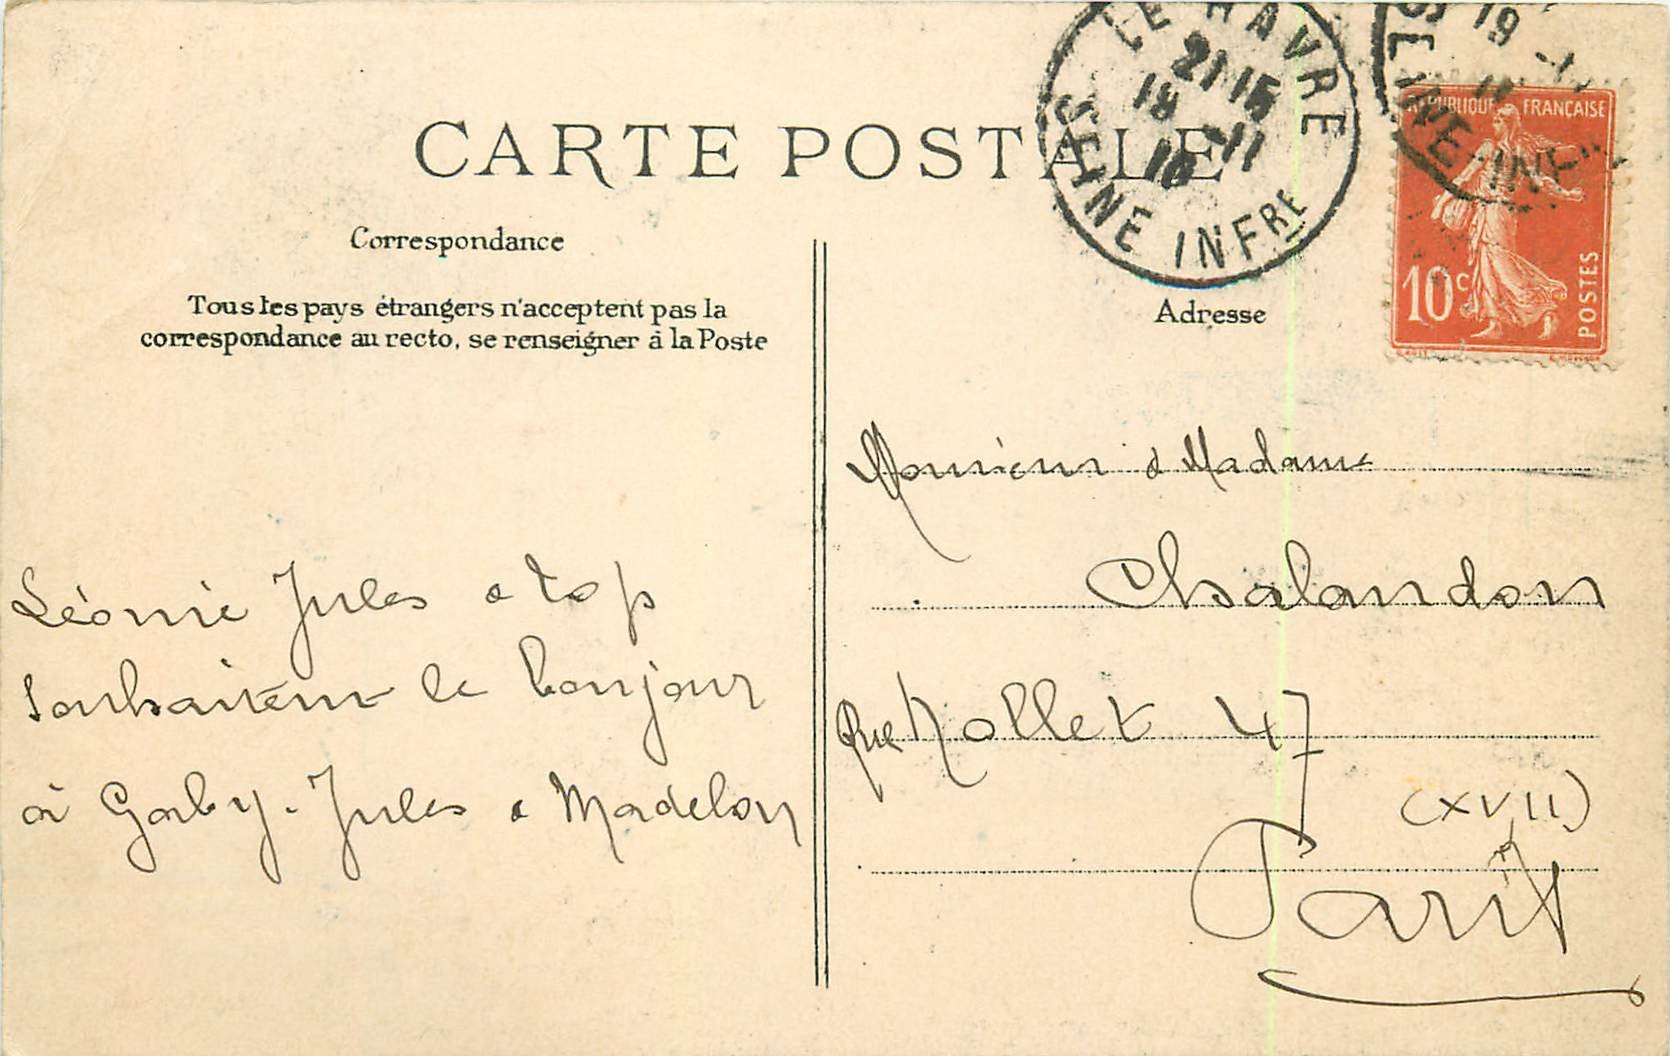 CARTE POSTALE
LE HAVRE
21 15
18 -11
10
SEINE INFRE
19 -1
REPUBLIQUE FRANÇAISE
10c
POSTES
Correspondance
Tous les pays étrangers n'acceptent pas la
correspondance au recto, se renseigner à la Poste
Adresse
Léonie Jules & top
souhaitent le bonjour
à Gaby. Jules & Madelon
Monsieur & Madame
Chalandon
Rue Nollet 47
(XVII)
Paris